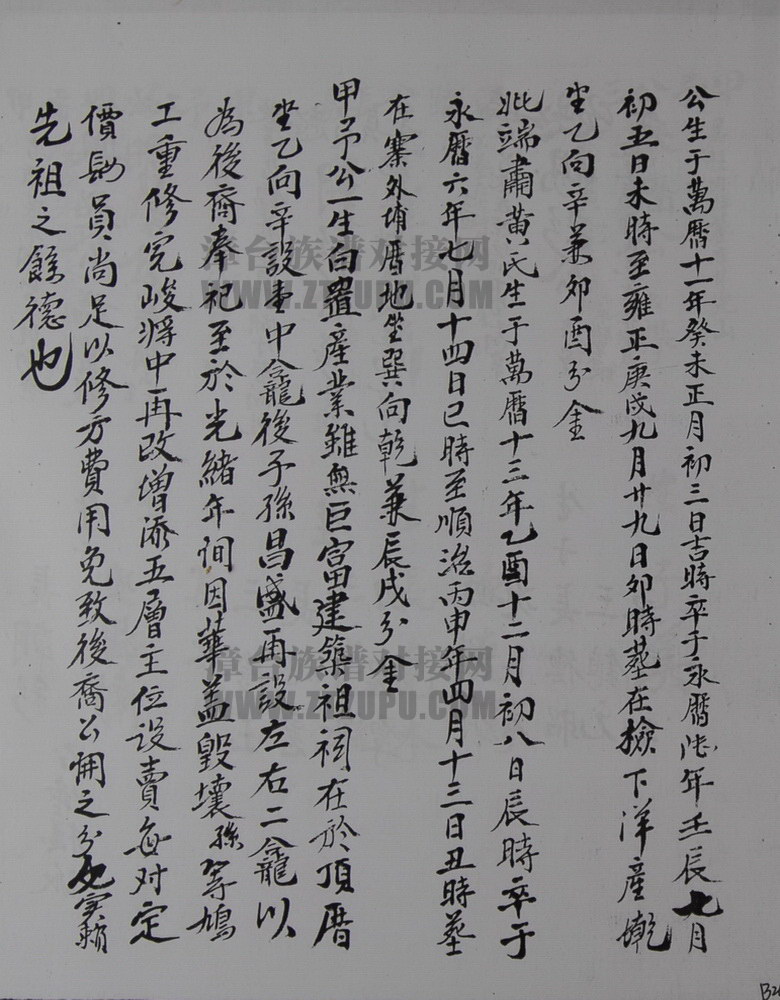 公生于萬曆十一年癸未正月初三日吉時卒于永曆陸年壬辰七月
初五日未時至雍正庚戌九月廿九日卯時葬在撿下洋產墘
坐乙向辛兼卯酉分金
妣端肅黃氏生于萬曆十三年乙酉十二月初八日辰時卒于
永曆六年七月十四日巳時至順治丙申年四月十三日丑時葬
在寨外埔厝地坐巽向乾兼辰戌分金
甲予公一生自置產業雖無巨富建築祖祠在於頂厝
坐乙向辛設壹中龕後子孫昌盛再設左右二龕以
為後裔奉祀至於光緒年间因華盖毀壞孫等鳩
工重修完峻将中再改增添五層主位設賣每对定
價員尚足以修方費用免致後裔公佣之分实賴
先祖之餘德也
漳台族谱对接网
WWW.ZTZUPU.COM
漳台族谱对接网
WWW.ZTZUPU.COM